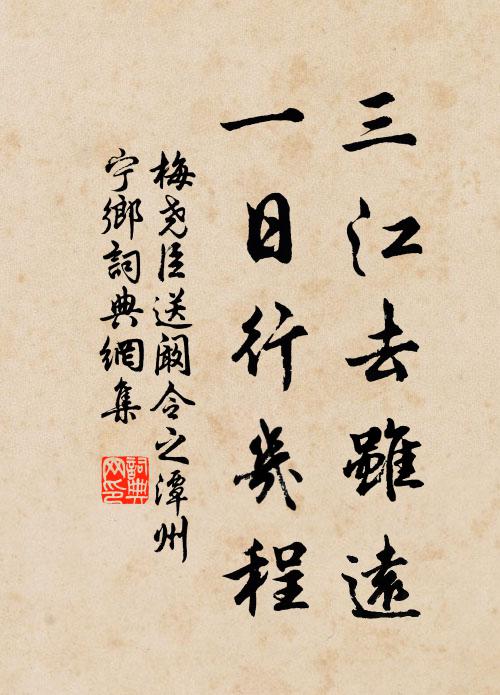 三江去雖遠
一日行幾程
梅尧臣送阚令之潭州
宁鄉詞典網集
詞典
网印